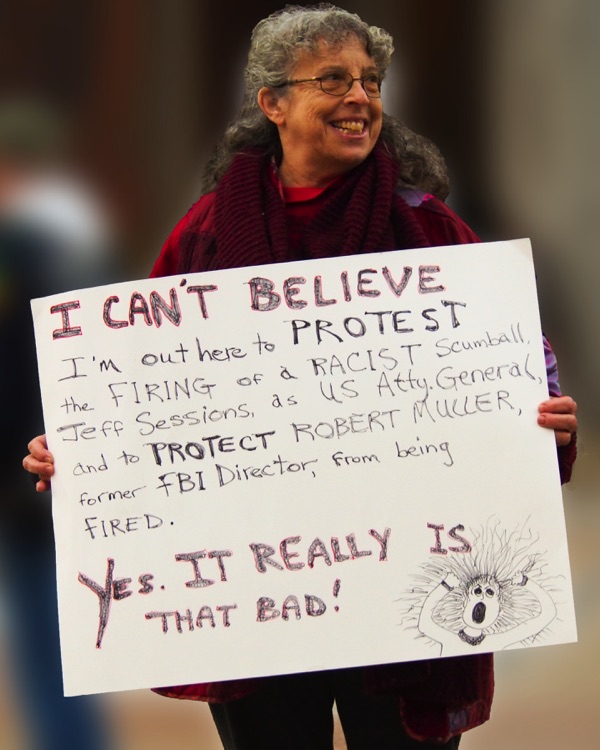 I CAN'T BELIEVE
I'm out here to PROTEST
the FIRING of a RACIST Scumball,
Jeff Sessions, as US Atty. General,
and to PROTECT ROBERT MULLER,
former FBI Director, from being
FIRED.
YES. IT REALLY IS
THAT BAD!